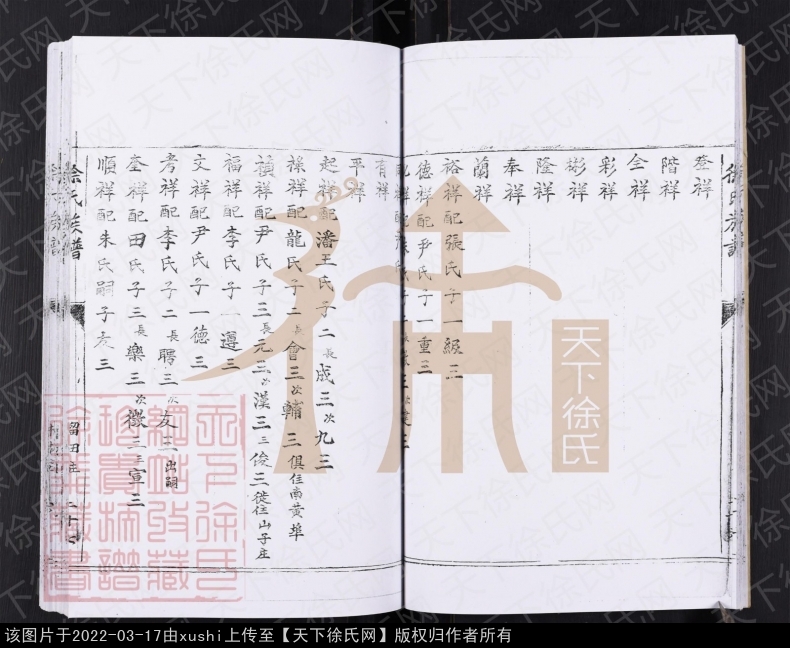 登祥
階祥
仝祥
彩祥
彬祥
隆祥
奉祥
蘭祥
裕祥配張氏子一級三
德祥配尹氏子一重三
有祥
平祥
起祥配潘王氏子二長成三次九三
操祥配龍氏子二長會三次輔三俱住南黄埠
禎祥配尹氏子三長元三次漢三三俊三徙住山子庄
福祥配李氏子一運三
文祥配尹氏子一德三
考祥配李氏子二長聘三次友三出嗣
奎祥配田氏子三長樂三次徵三三宣三
順祥配朱氏嗣子友三
徐氏族譜
留田庄
天下徐氏
天下徐氏网
该图片于2022-03-17由xushi上传至【天下徐氏网】版权归作者所有